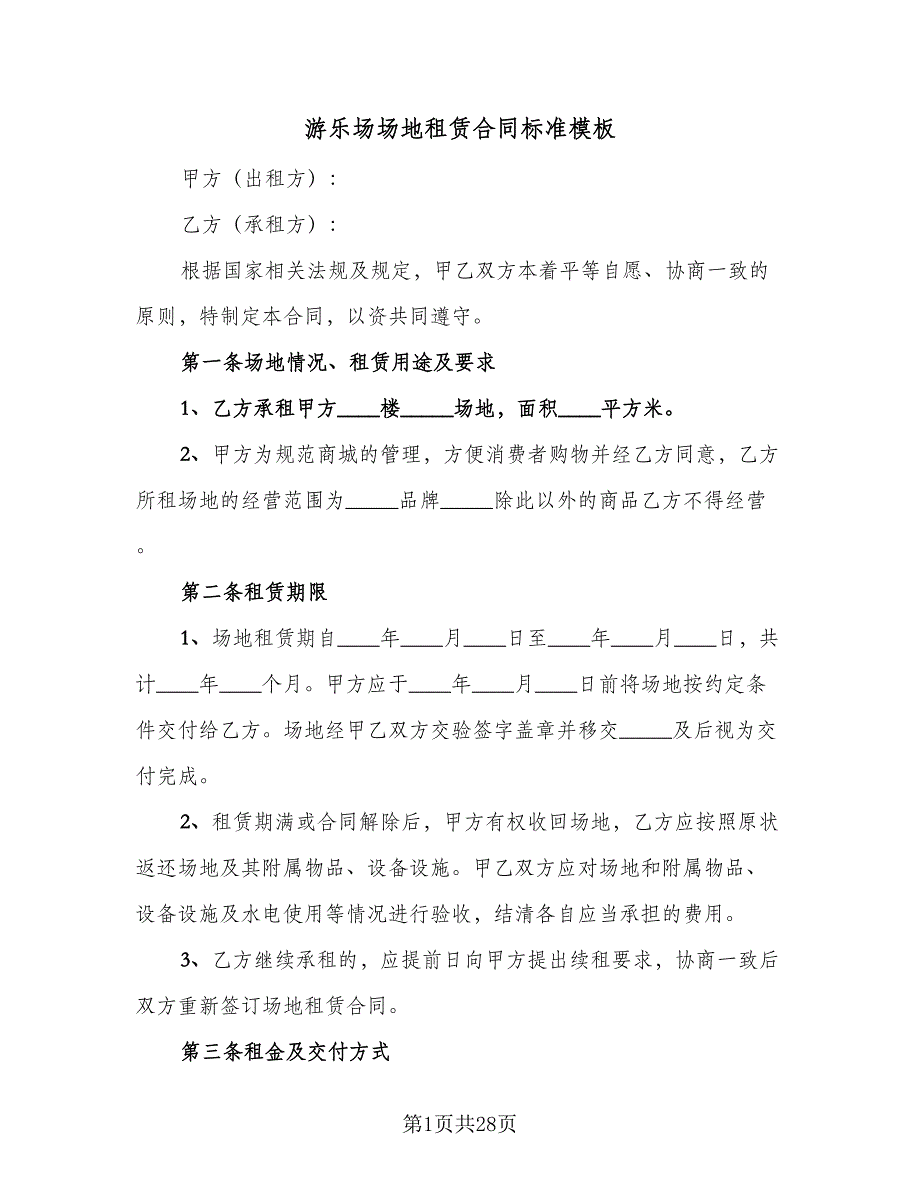 游乐场场地租赁合同标准模板
甲方（出租方）：
乙方（承租方）：
根据国家相关法规及规定，甲乙双方本着平等自愿、协商一致的
原则，特制定本合同，以资共同遵守。
第一条场地情况、租赁用途及要求
1、乙方承租甲方____楼_____场地，面积____平方米。
2、甲方为规范商城的管理，方便消费者购物并经乙方同意，乙方
所租场地的经营范围为_____品牌_____除此以外的商品乙方不得经营
。
第二条租赁期限
1、场地租赁期自____年____月____日至____年____月____日，共
计____年____个月。甲方应于____年____月____日前将场地按约定条
件交付给乙方。场地经甲乙双方交验签字盖章并移交_____及后视为交
付完成。
2、租赁期满或合同解除后，甲方有权收回场地，乙方应按照原状
返还场地及其附属物品、设备设施。甲乙双方应对场地和附属物品、
设备设施及水电使用等情况进行验收，结清各自应当承担的费用。
3、乙方继续承租的，应提前日向甲方提出续租要求，协商一致后
双方重新签订场地租赁合同。
第三条租金及交付方式
第1页共28页